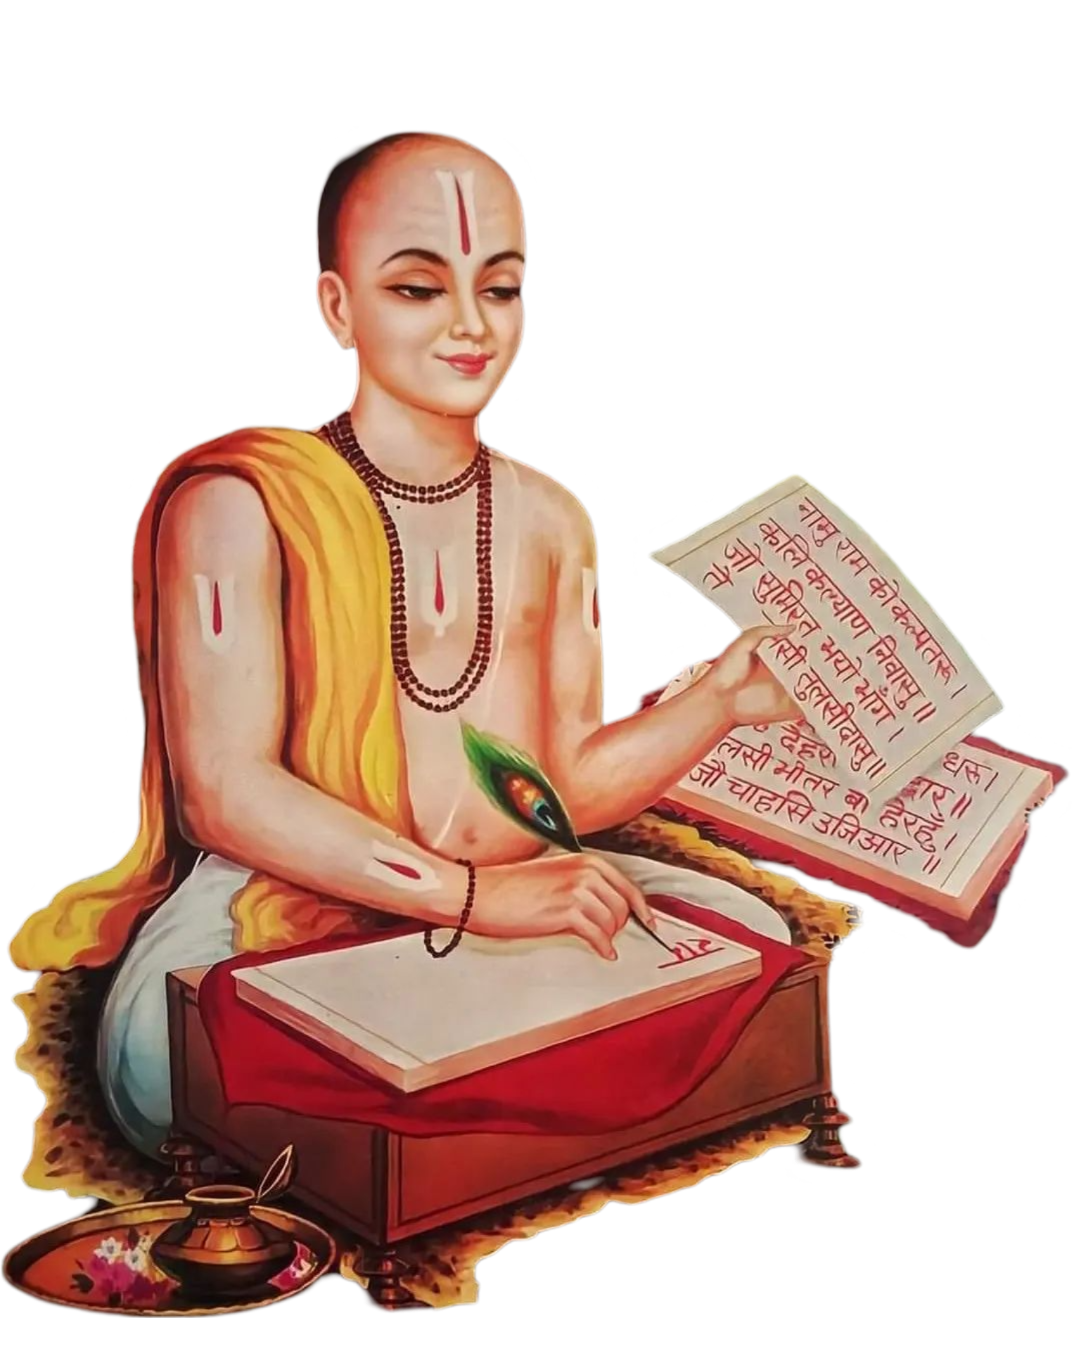 नामु राम को कल्पतरू ।
कलि कल्याण निवासु ॥
जौ सुमिरत भयो भाँग ।
तें सी तुलसीदासु ॥
धरू।
देहर ार ॥
लसी भीतर बा हेरहुँ ।
जौ चाहसि उजिआर ॥
राम